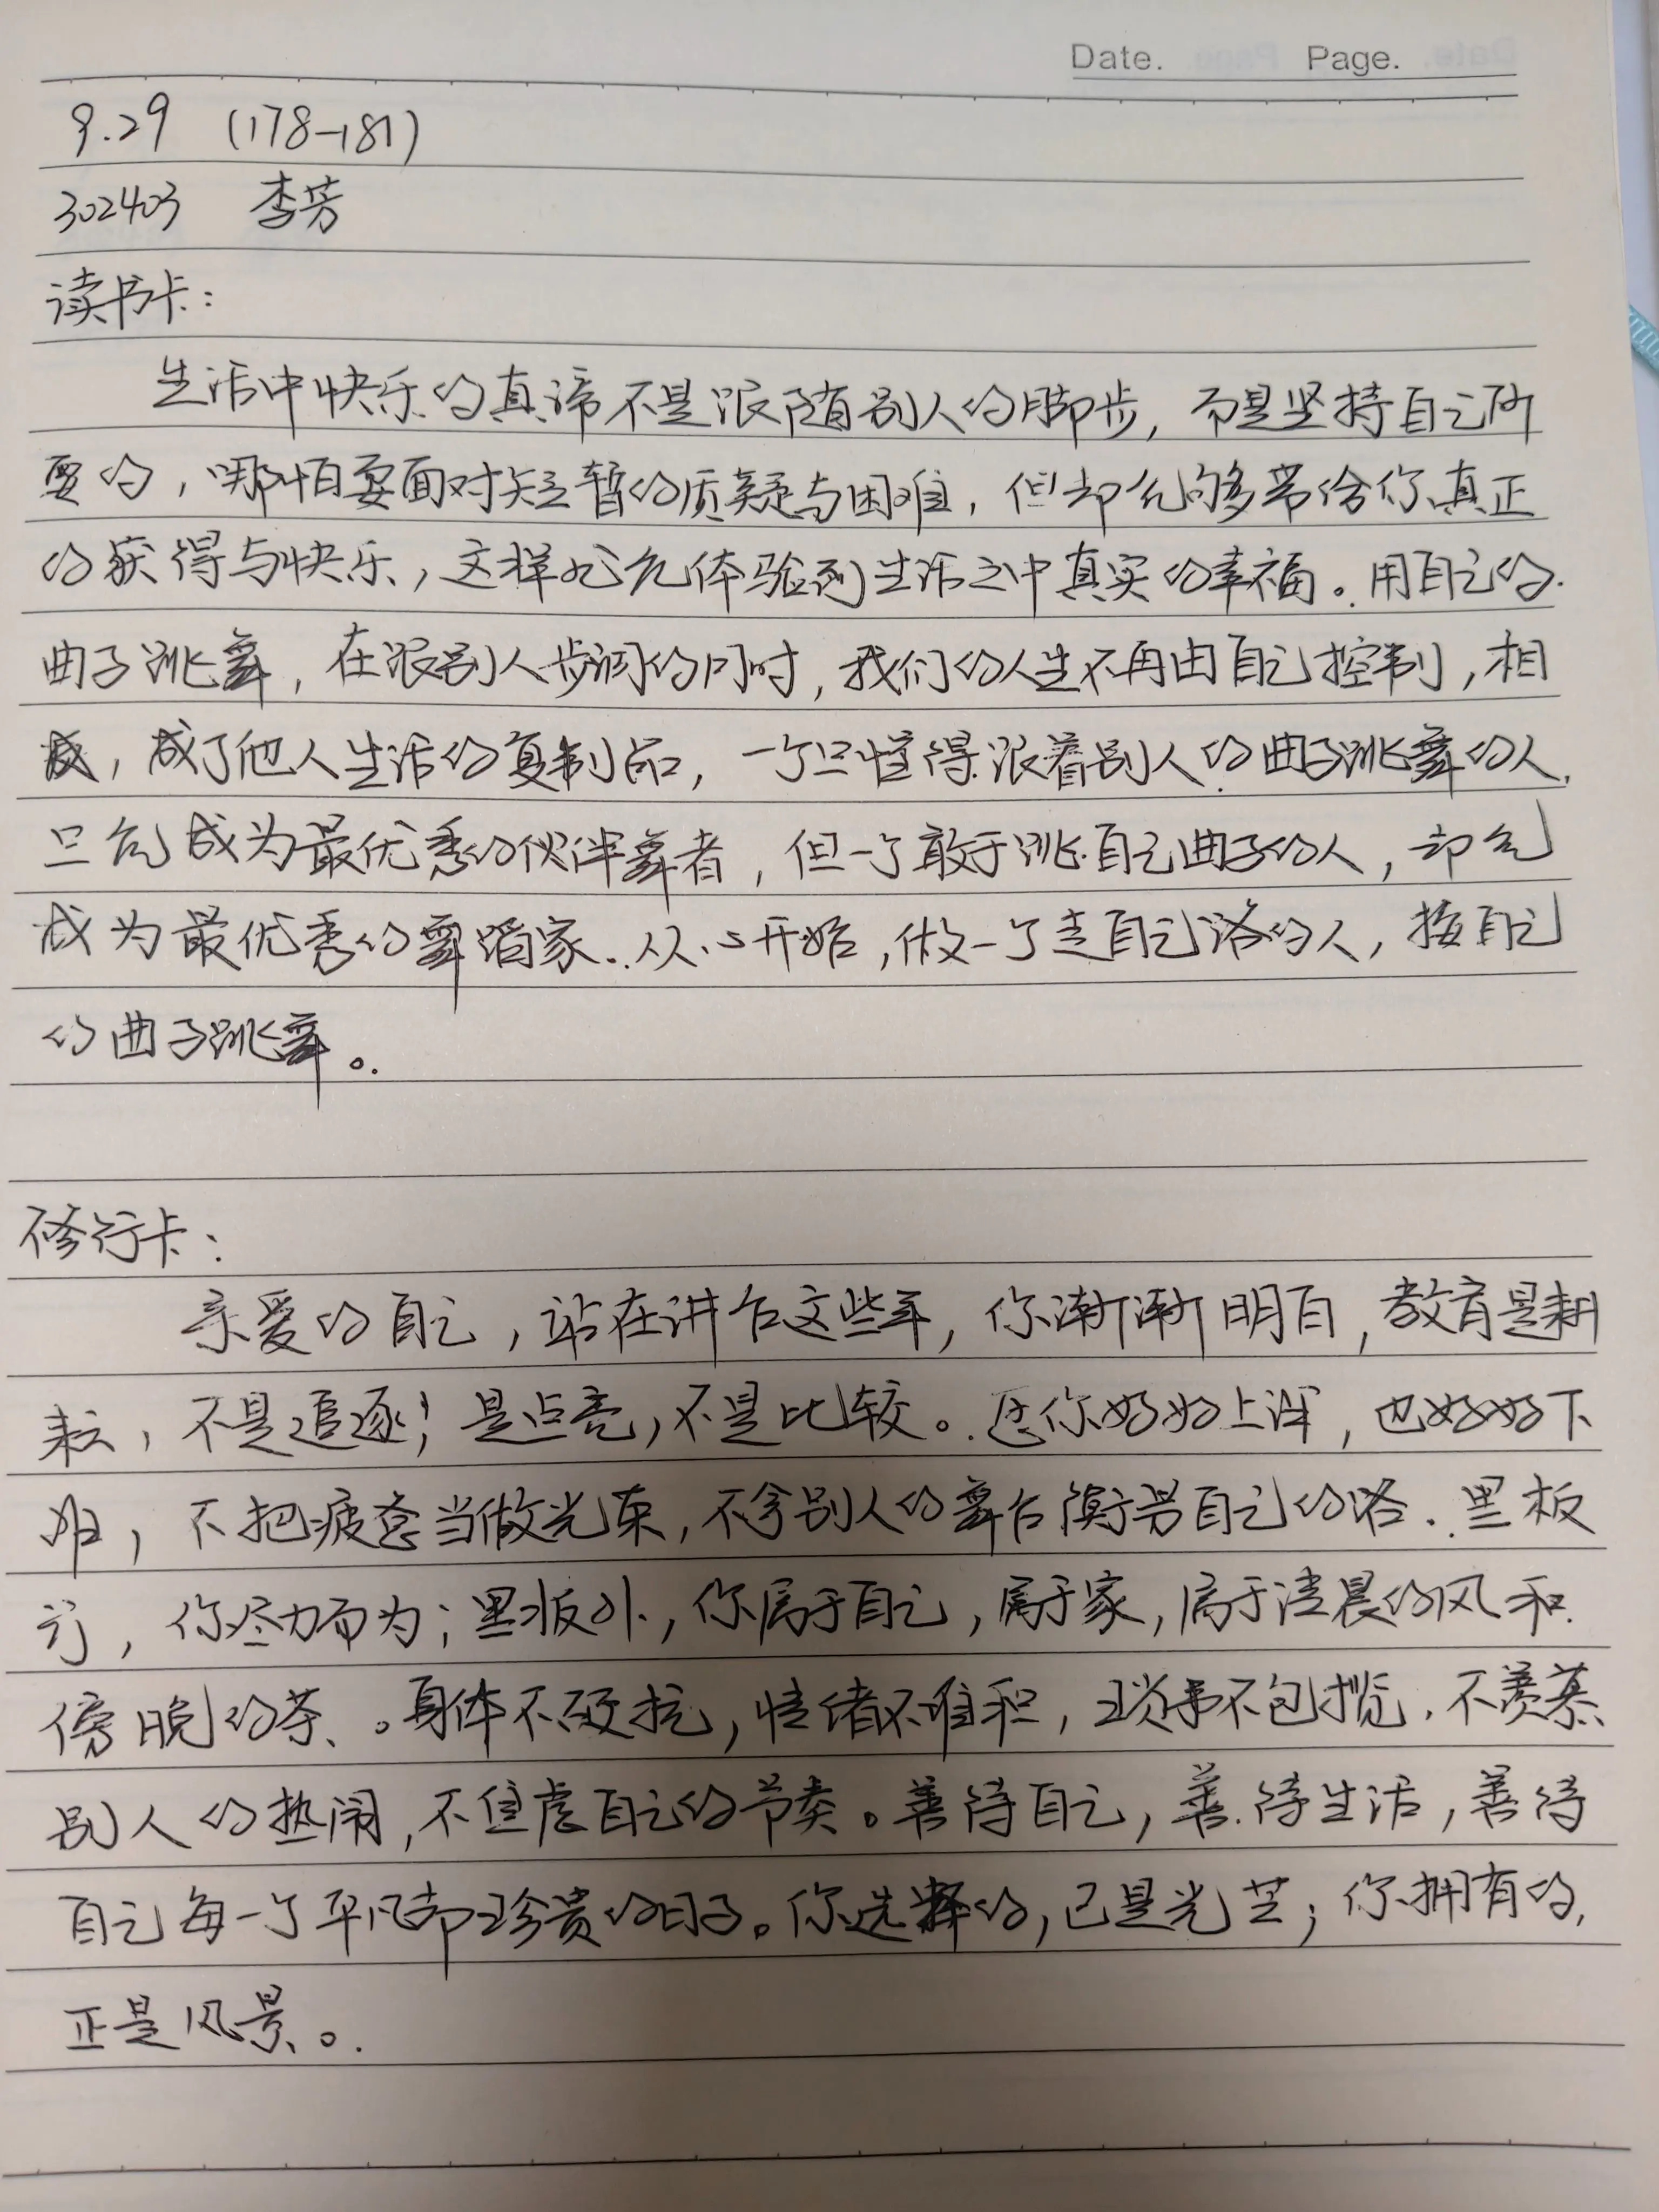 Date. Page.
9.29 (178-181)
302403 李芳
读书卡:
生活中快乐的真谛不是跟随别人的脚步, 而是坚持自己所
要的, 哪怕要面对短暂的质疑与困难, 但却能够带给你真正
的获得与快乐, 这样必能体验到生活之中真实的幸福。用自己的
曲子跳舞, 在跟别人步调的同时, 我们的人生不再由自己控制, 相
成了他人生活的复制品, 一个只懂得跟着别人的曲子跳舞的人,
只能成为最优秀的伙伴舞者, 但一个敢于跳自己曲子的人, 却能
成为最优秀的舞蹈家. 从心开始, 做一个走自己路的人, 按自己
的曲子跳舞。
修行卡:
亲爱的自己, 站在讲台这些年, 你渐渐明白, 教育是耕
耘, 不是追逐; 是点亮, 不是比较。愿你好好上课, 也好好下
班, 不把疲惫当做光荣, 不拿别人的舞台衡量自己的路. 黑板
前, 你尽力而为; 黑板外, 你属于自己, 属于家, 属于清晨的风和
傍晚的茶。身体不硬扛, 情绪不堆积, 琐事不包揽. 不羡慕
别人的热闹, 不焦虑自己的节奏。善待自己, 善待生活, 善待
自己每一个平凡却珍贵的日子。你选择的, 已是光芒; 你拥有的,
正是风景。